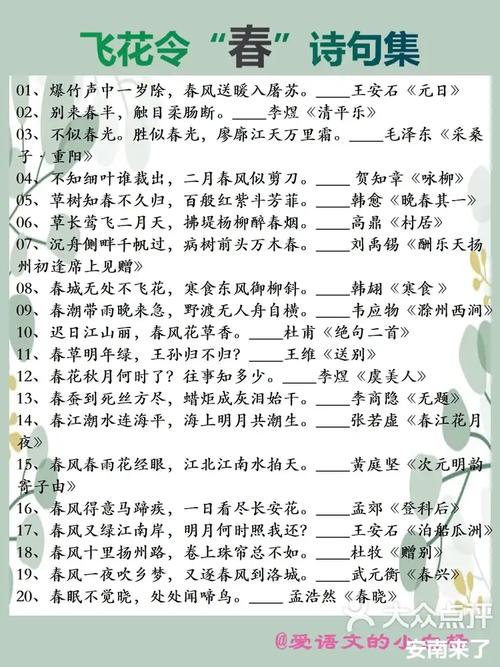 飞花令“春”诗句集
01、爆竹声中一岁除，春风送暖入屠苏。____王安石《元日》
02、别来春半，触目柔肠断。____李煜《清平乐》
03、不似春光。胜似春光，廖廓江天万里霜。____毛泽东《采桑
子·重阳》
04、不知细叶谁裁出，二月春风似剪刀。____ 贺知章《咏柳》
05、草树知春不久归，百般红紫斗芳菲。____韩愈《晚春其一》
06、草长莺飞二月天，拂堤杨柳醉春烟。____高鼎《村居》
07、沉舟侧畔千帆过，病树前头万木春。____刘禹锡《酬乐天扬
州初逢席上见赠》
08、春城无处不飞花，寒食东风御柳斜。____韩翃《寒食 》
09、春潮带雨晚来急，野渡无人舟自横。____韦应物《滁州西涧》
10、迟日江山丽，春风花草香。____杜甫《绝句二首》
11、春草明年绿，王孙归不归？____王维《送别》
12、春花秋月何时了？往事知多少。____李煜《虞美人》
13、春蚕到死丝方尽，蜡炬成灰泪始干。____李商隐《无题》
14、春江潮水连海平，海上明月共潮生。____张若虚《春江花月
夜》
15、春风春雨花经眼，江北江南水拍天。____黄庭坚《次元明韵
寄子由》
16、春风得意马蹄疾，一日看尽长安花。____孟郊《登科后》
17、春风又绿江南岸，明月何时照我还？____王安石《泊船瓜洲》
18、春风十里扬州路，卷上珠帘总不如。____杜牧《赠别》
19、春风一夜吹乡梦，又逐春风到洛城。____武元衡《春兴》
20、春眠不觉晓，处处闻啼鸟。____孟浩然《春晓》
大众点评
@爱语文的小
安南来了